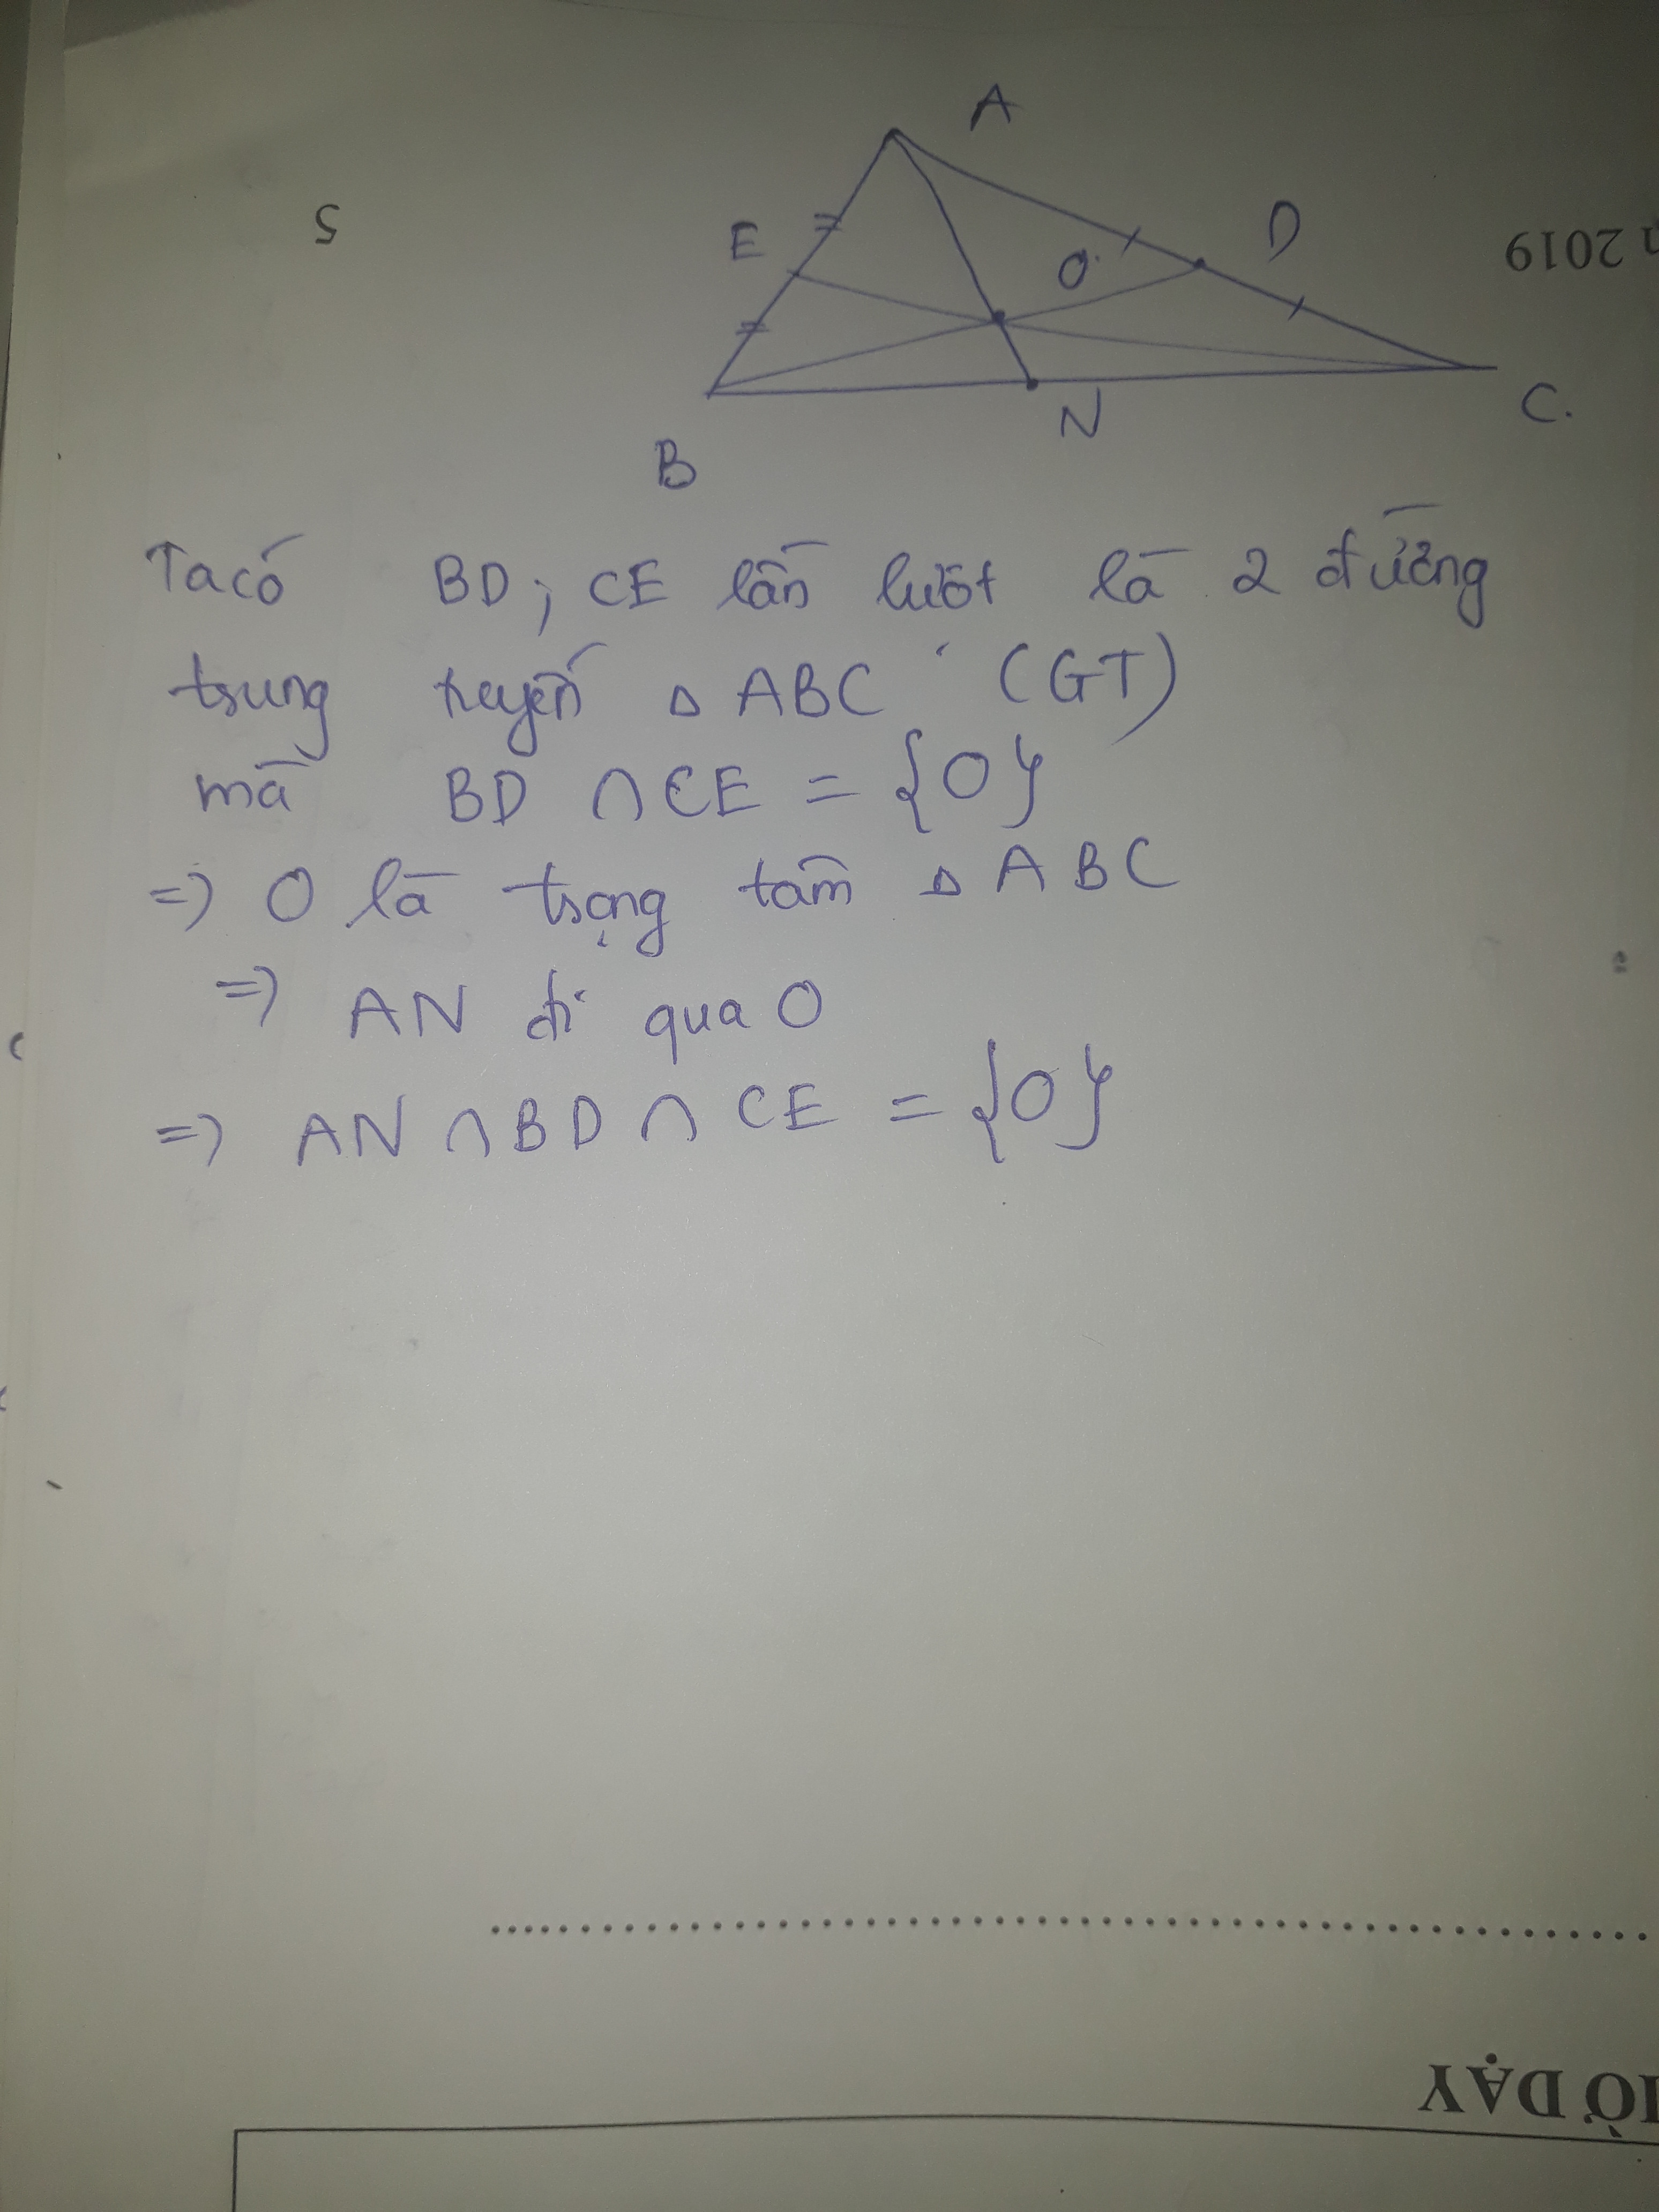 A
5
E
D
n 2019
O
C.
N
B
Ta có BD; CE lần lượt là 2 đường
trung tuyến Δ ABC (GT)
mà BD ∩ CE = {O}
=> O là trọng tâm Δ ABC
=> AN đi qua O
=> AN ∩ BD ∩ CE = {O}
IỜ DẠY